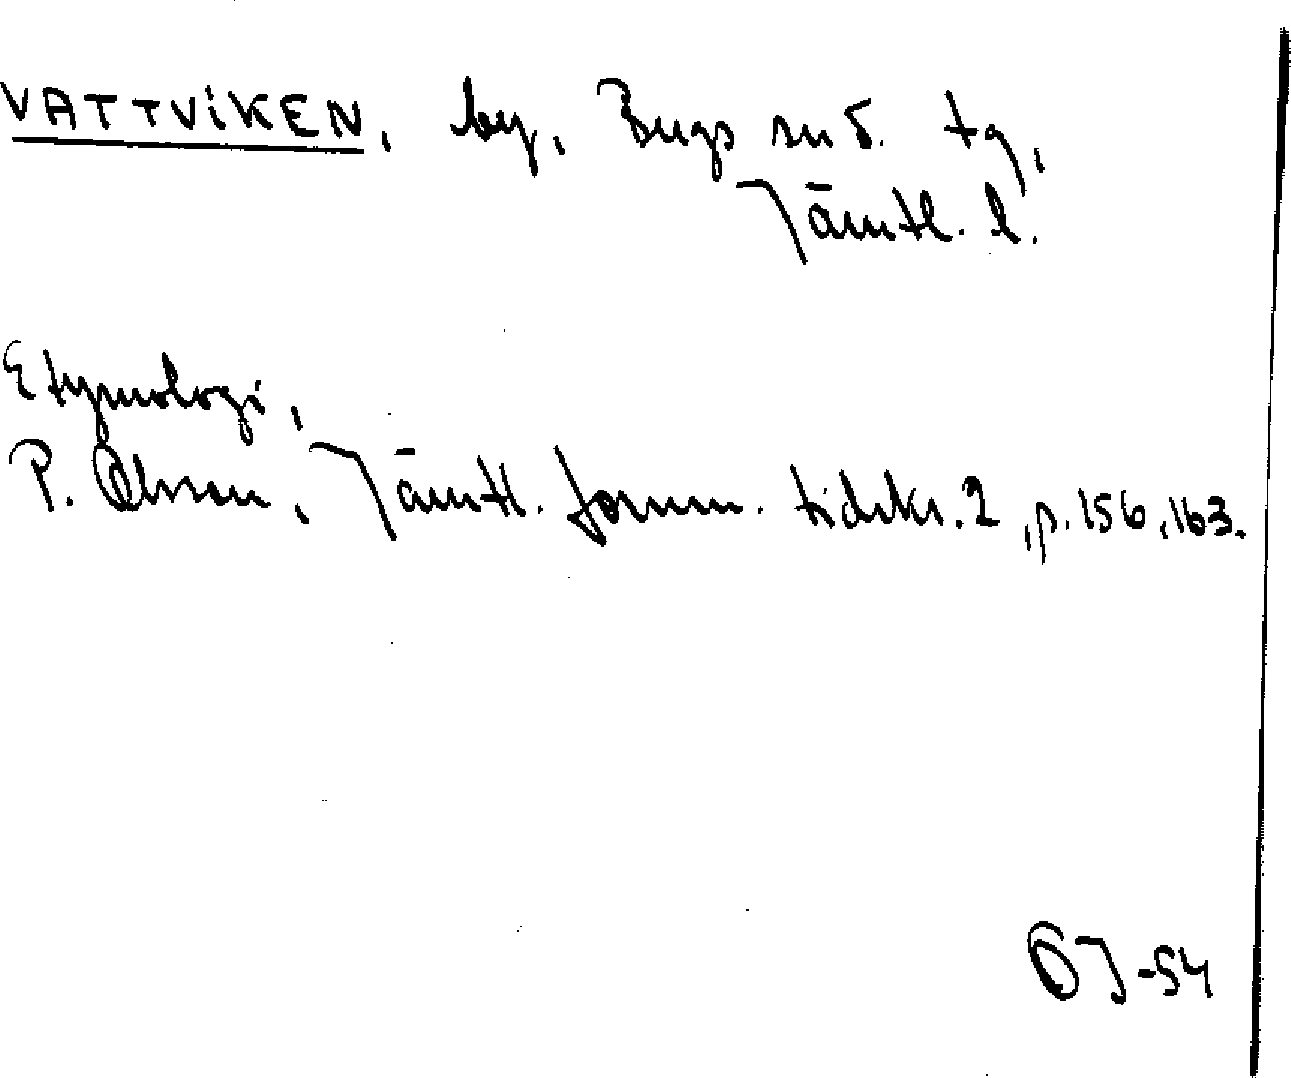 VATTVIKEN, by, Bergs sn ö. tg,
Jämtl. l.
Etymologi,
P. Olsson, Jämtl. fornm. tidskr. 2, p. 156, 163.
ÖJ-54